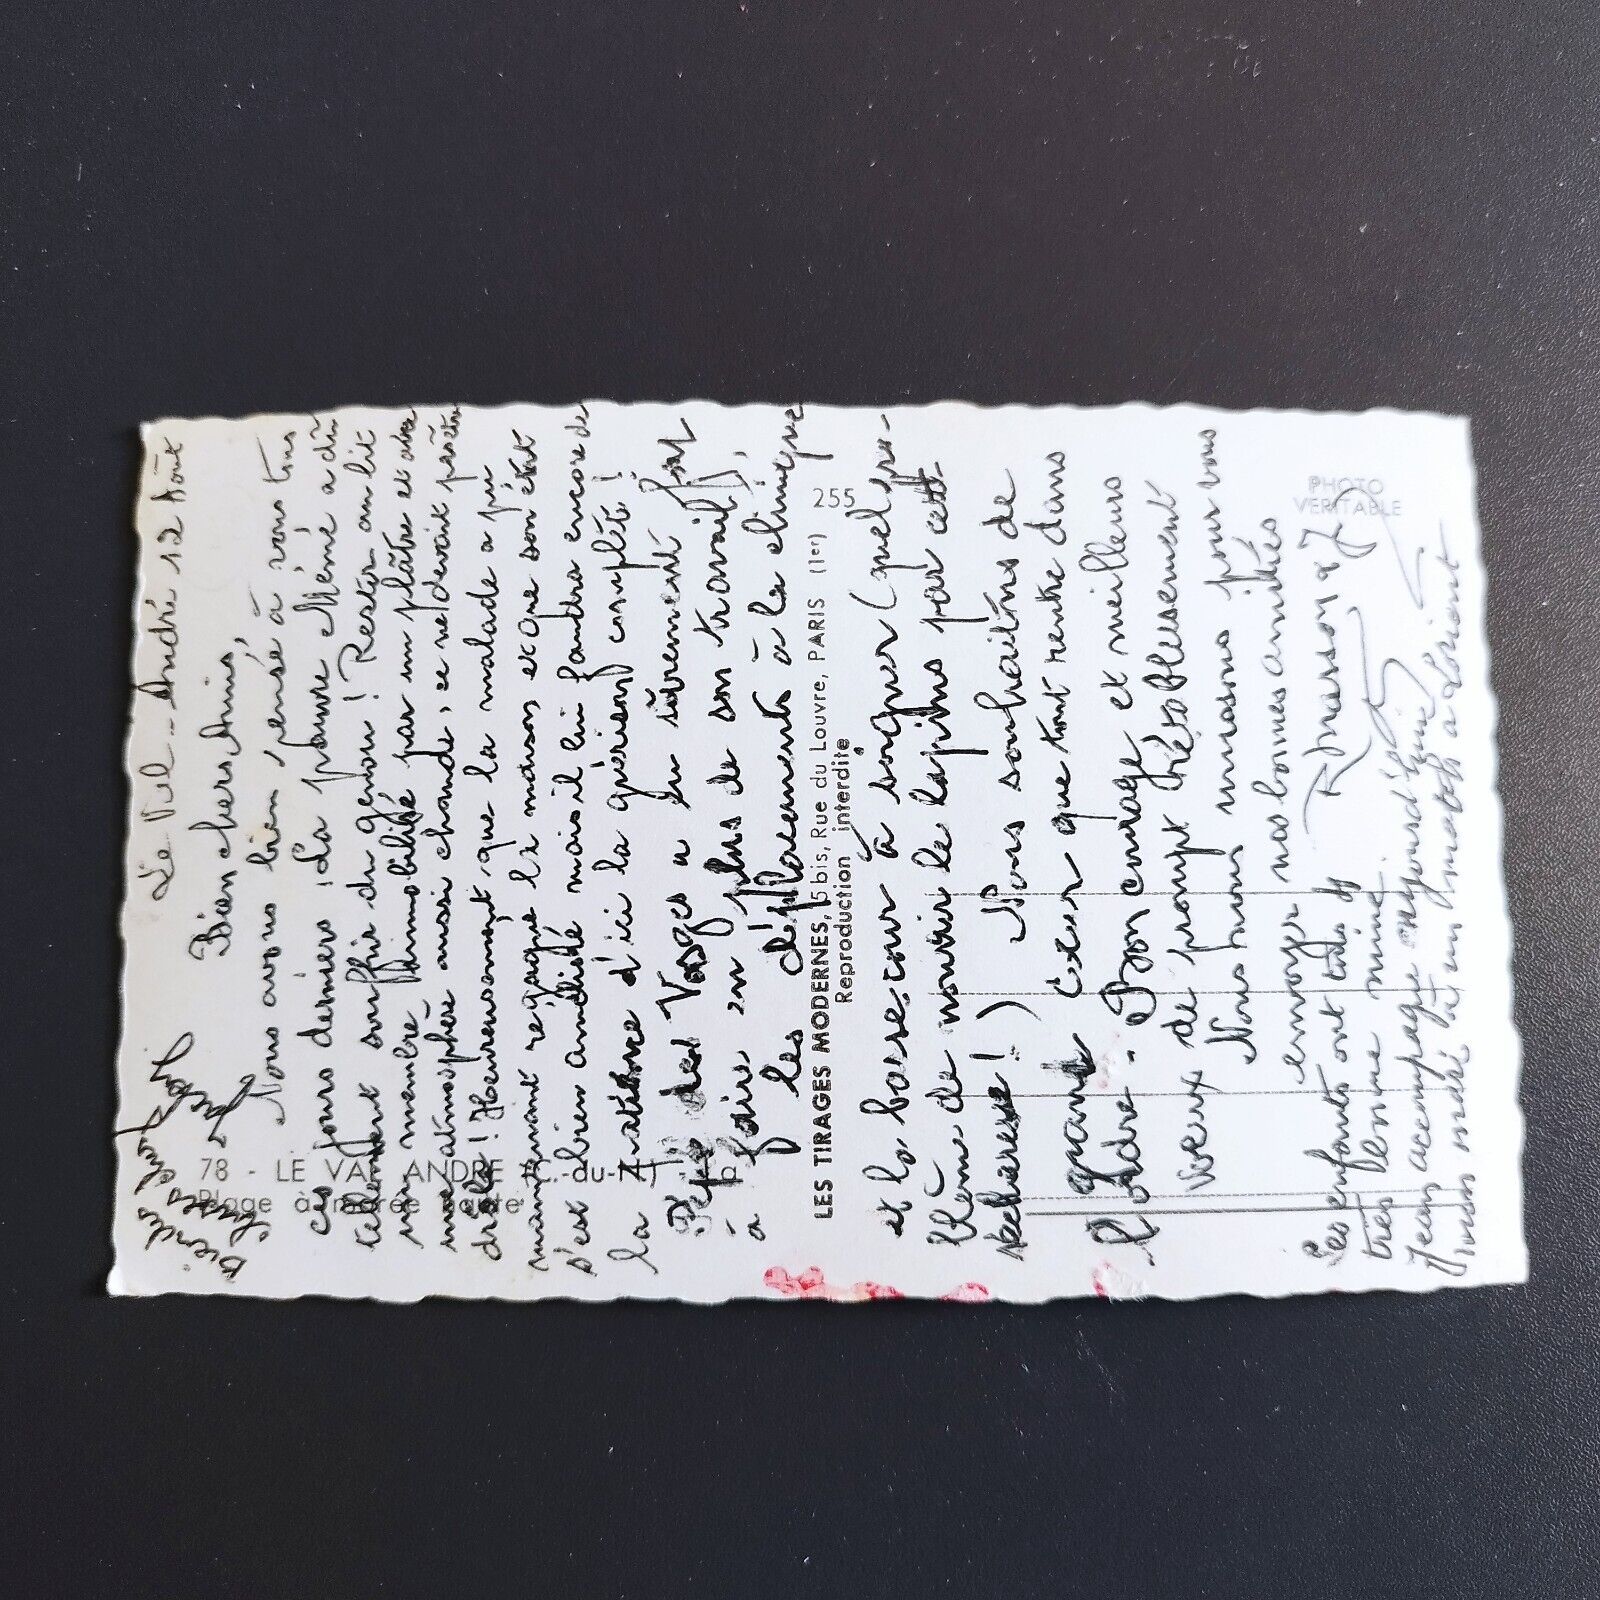 Le Val-André 12 Août
Bien chers Amis,
Nous avons bien pensé à vous tous
ces jours derniers. La pauvre Mémé a dû
tellement souffrir du genou ! Rester au lit
un membre immobilisé par un plâtre et avec
une atmosphère aussi chaude, ce ne devait pas être
drôle ! Heureusement que la malade a pu
maintenant regagner la maison et que son état
s'est bien amélioré mais il lui faudra encore de
la patience d'ici la guérison complète !
Pépé des Vosges a dû sûrement fort
à faire en plus de son travail,
les déplacements à la clinique
et la basse-cour à soigner (quel pro-
blème de nourrir le lapins par cette
sécheresse !) Nous souhaitons de
grand cœur que tout rentre dans
l'ordre. Bon courage et meilleurs
vœux de prompt rétablissement
Nous nous unissons pour vous
envoyer nos bonnes amitiés
Les enfants ont tous
très bonne mine.
Jean accompagne aujourd'hui
à Lorient
78 - LE VAL ANDRÉ (C.-du-N.)
Plage à marée
LES TIRAGES MODERNES, 5 bis, Rue du Louvre, PARIS (1er) 255
Reproduction interdite
PHOTO
VERITABLE